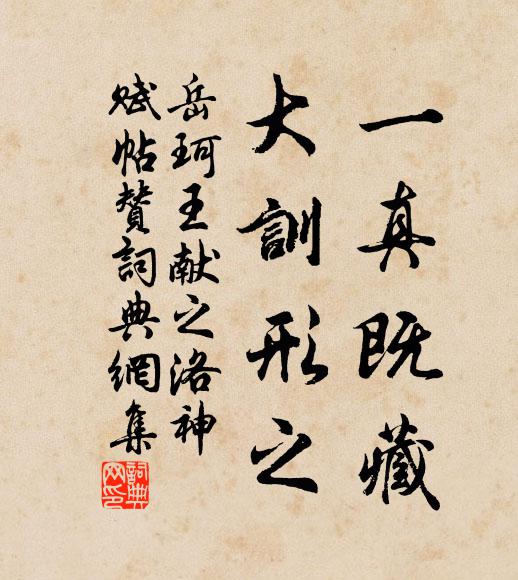 一真既藏
大訓形之
岳珂王献之洛神
赋帖赞詞典網集
詞典网印